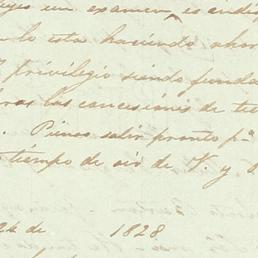 leyes un examen, es indis
lo esta haciendo ahor
privilegio siendo funda
las concesiones de tie
Pienso salir pronto pa
tiempo de oir de V. y
de 1828